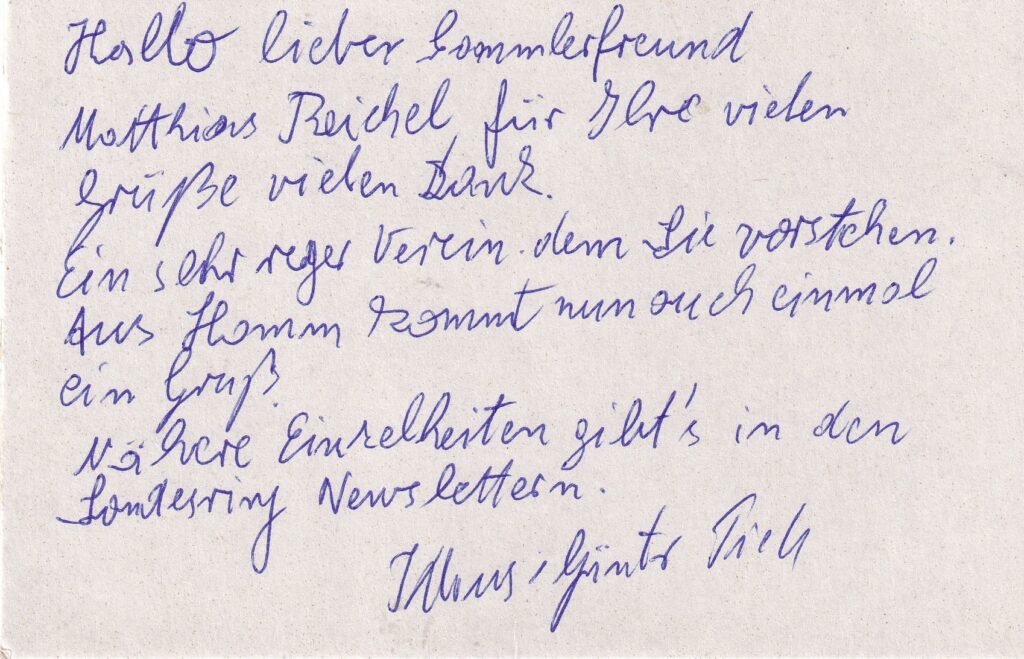 Hallo lieber Sammlerfreund
Matthias Reichel, für Ihre vielen
Grüße vielen Dank.
Ein sehr reger Verein dem Sie vorstehen.
Aus Hamm kommt nun auch einmal
ein Gruß.
Nähere Einzelheiten gibt's in den
Landesring Newslettern.
Klaus-Günter